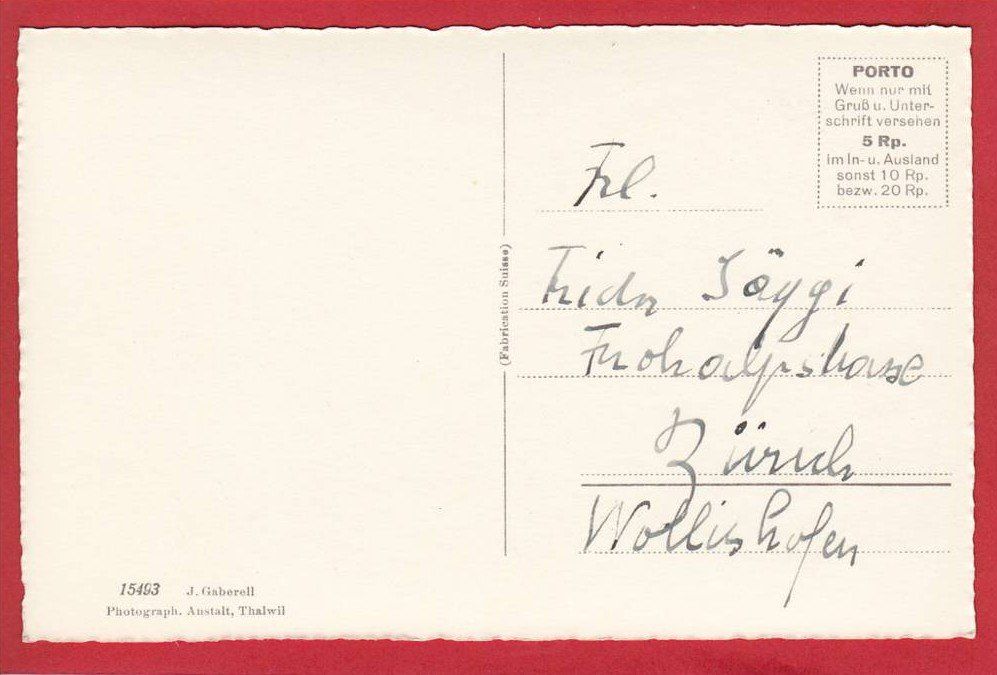 PORTO
Wenn nur mit
Gruß u. Unter-
schrift versehen
5 Rp.
im In- u. Ausland
sonst 10 Rp.
bezw. 20 Rp.
Frl.
Frida Jäggi
Frohalpstrasse
Zürich
Wollishofen
(Fabrication Suisse)
15493 J. Gaberell
Photograph. Anstalt, Thalwil